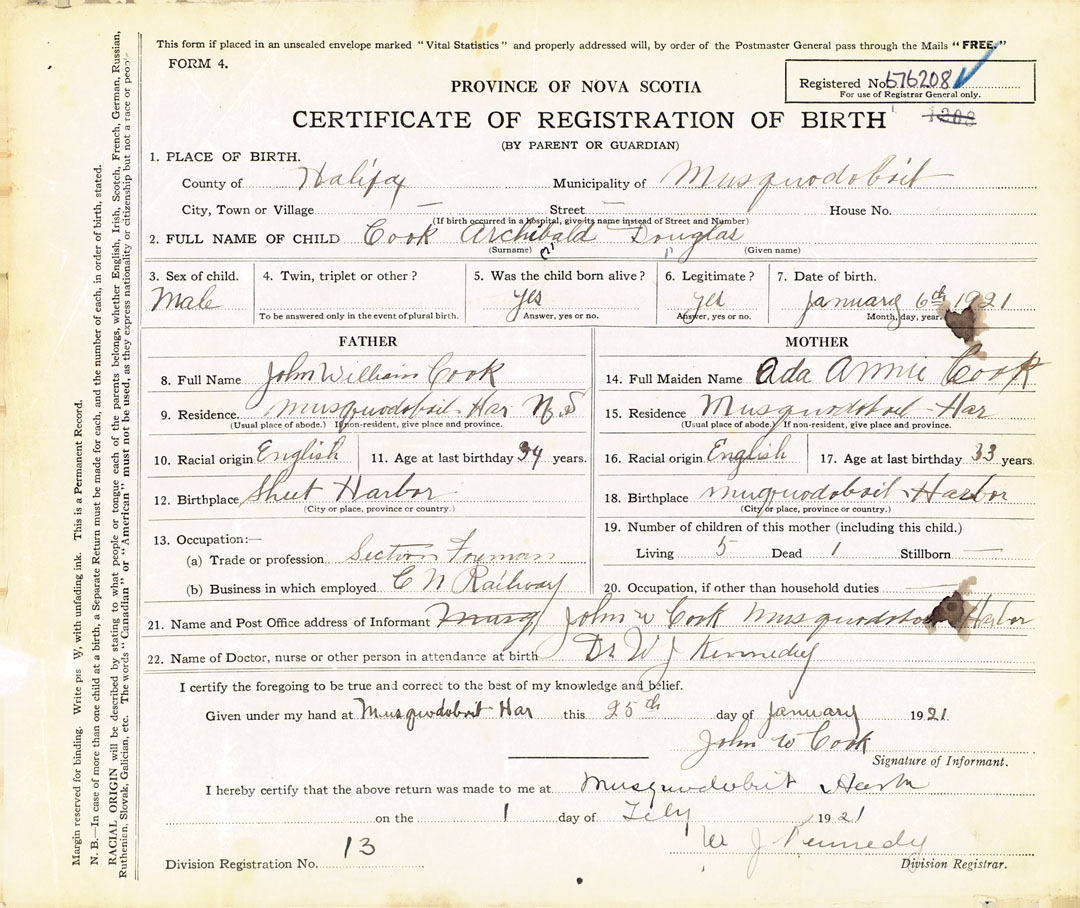 This form if placed in an unsealed envelope marked "Vital Statistics" and properly addressed will, by order of the Postmaster General pass through the Mails "FREE."
FORM 4.
Registered No. 576208
For use of Registrar General only.
PROVINCE OF NOVA SCOTIA
CERTIFICATE OF REGISTRATION OF BIRTH
(BY PARENT OR GUARDIAN)
1. PLACE OF BIRTH.
County of Halifax Municipality of Musquodoboit
City, Town or Village — Street — House No.
(If birth occurred in a hospital, give its name instead of Street and Number)
2. FULL NAME OF CHILD Cook Archibald Douglas
(Surname) (Given name)
3. Sex of child. 4. Twin, triplet or other? 5. Was the child born alive? 6. Legitimate? 7. Date of birth.
Male yes yes January 6th 1921
To be answered only in the event of plural birth. Answer, yes or no. Answer, yes or no. Month, day, year.
FATHER MOTHER
8. Full Name John William Cook 14. Full Maiden Name Ada Annie Cook
9. Residence. Musquodoboit Har N.S 15. Residence Musquodoboit Har
(Usual place of abode.) If non-resident, give place and province. (Usual place of abode.) If non-resident, give place and province.
10. Racial origin English 11. Age at last birthday 34 years. 16. Racial origin English 17. Age at last birthday 33 years
12. Birthplace Sheet Harbor 18. Birthplace Muquodoboit Harbor
(City or place, province or country.) (City or place, province or country.)
13. Occupation:— 19. Number of children of this mother (including this child.)
(a) Trade or profession Section Foreman Living 5 Dead 1 Stillborn —
(b) Business in which employed C N Railway 20. Occupation, if other than household duties —
21. Name and Post Office address of Informant Musq John W Cook Musquodoboit Harbor
22. Name of Doctor, nurse or other person in attendance at birth Dr W J Kennedy
I certify the foregoing to be true and correct to the best of my knowledge and belief.
Given under my hand at Musquodoboit Har this 25th day of January 1921
John W Cook
Signature of Informant.
I hereby certify that the above return was made to me at Musquodoboit Harbor
on the 1 day of Feby 1921
W J Kennedy
Division Registration No. 13 Division Registrar.
Margin reserved for binding. Write W, with unfading ink. This is a Permanent Record.
N. B.—In case of more than one child at a birth, a Separate Return must be made for each, and the number of each, in order of birth, stated.
RACIAL ORIGIN will be described by stating to what people or tongue each of the parents belongs, whether English, Irish, Scotch, French, German, Russian,
Ruthenien, Slovak, Galician, etc. The words "Canadian" or "American" must not be used, as they express nationality or citizenship but not a race or people